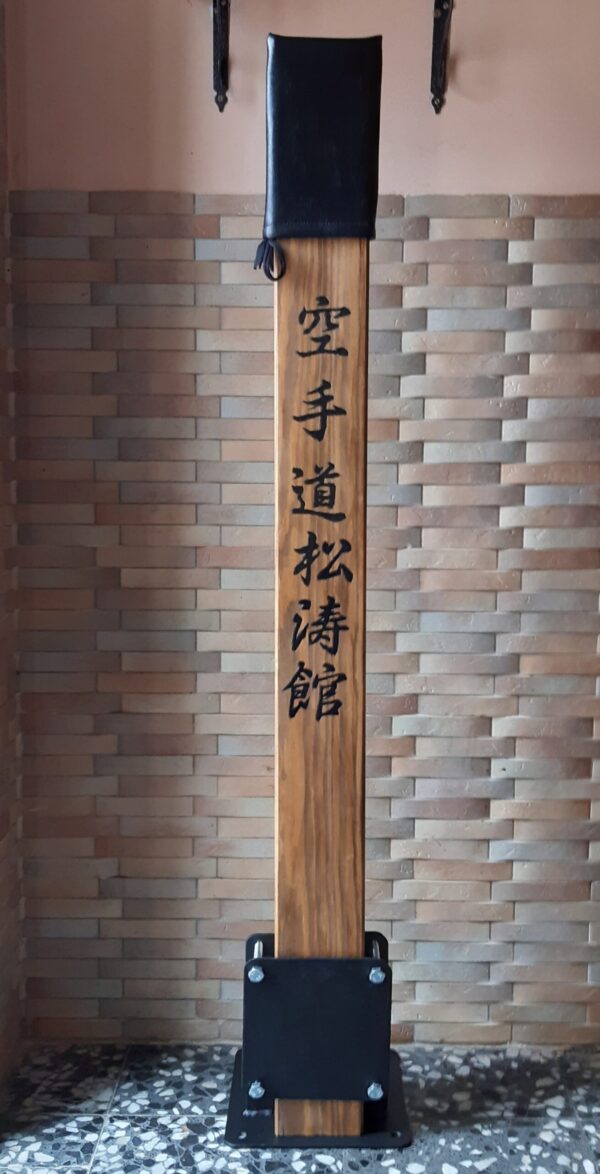 空手道松涛館